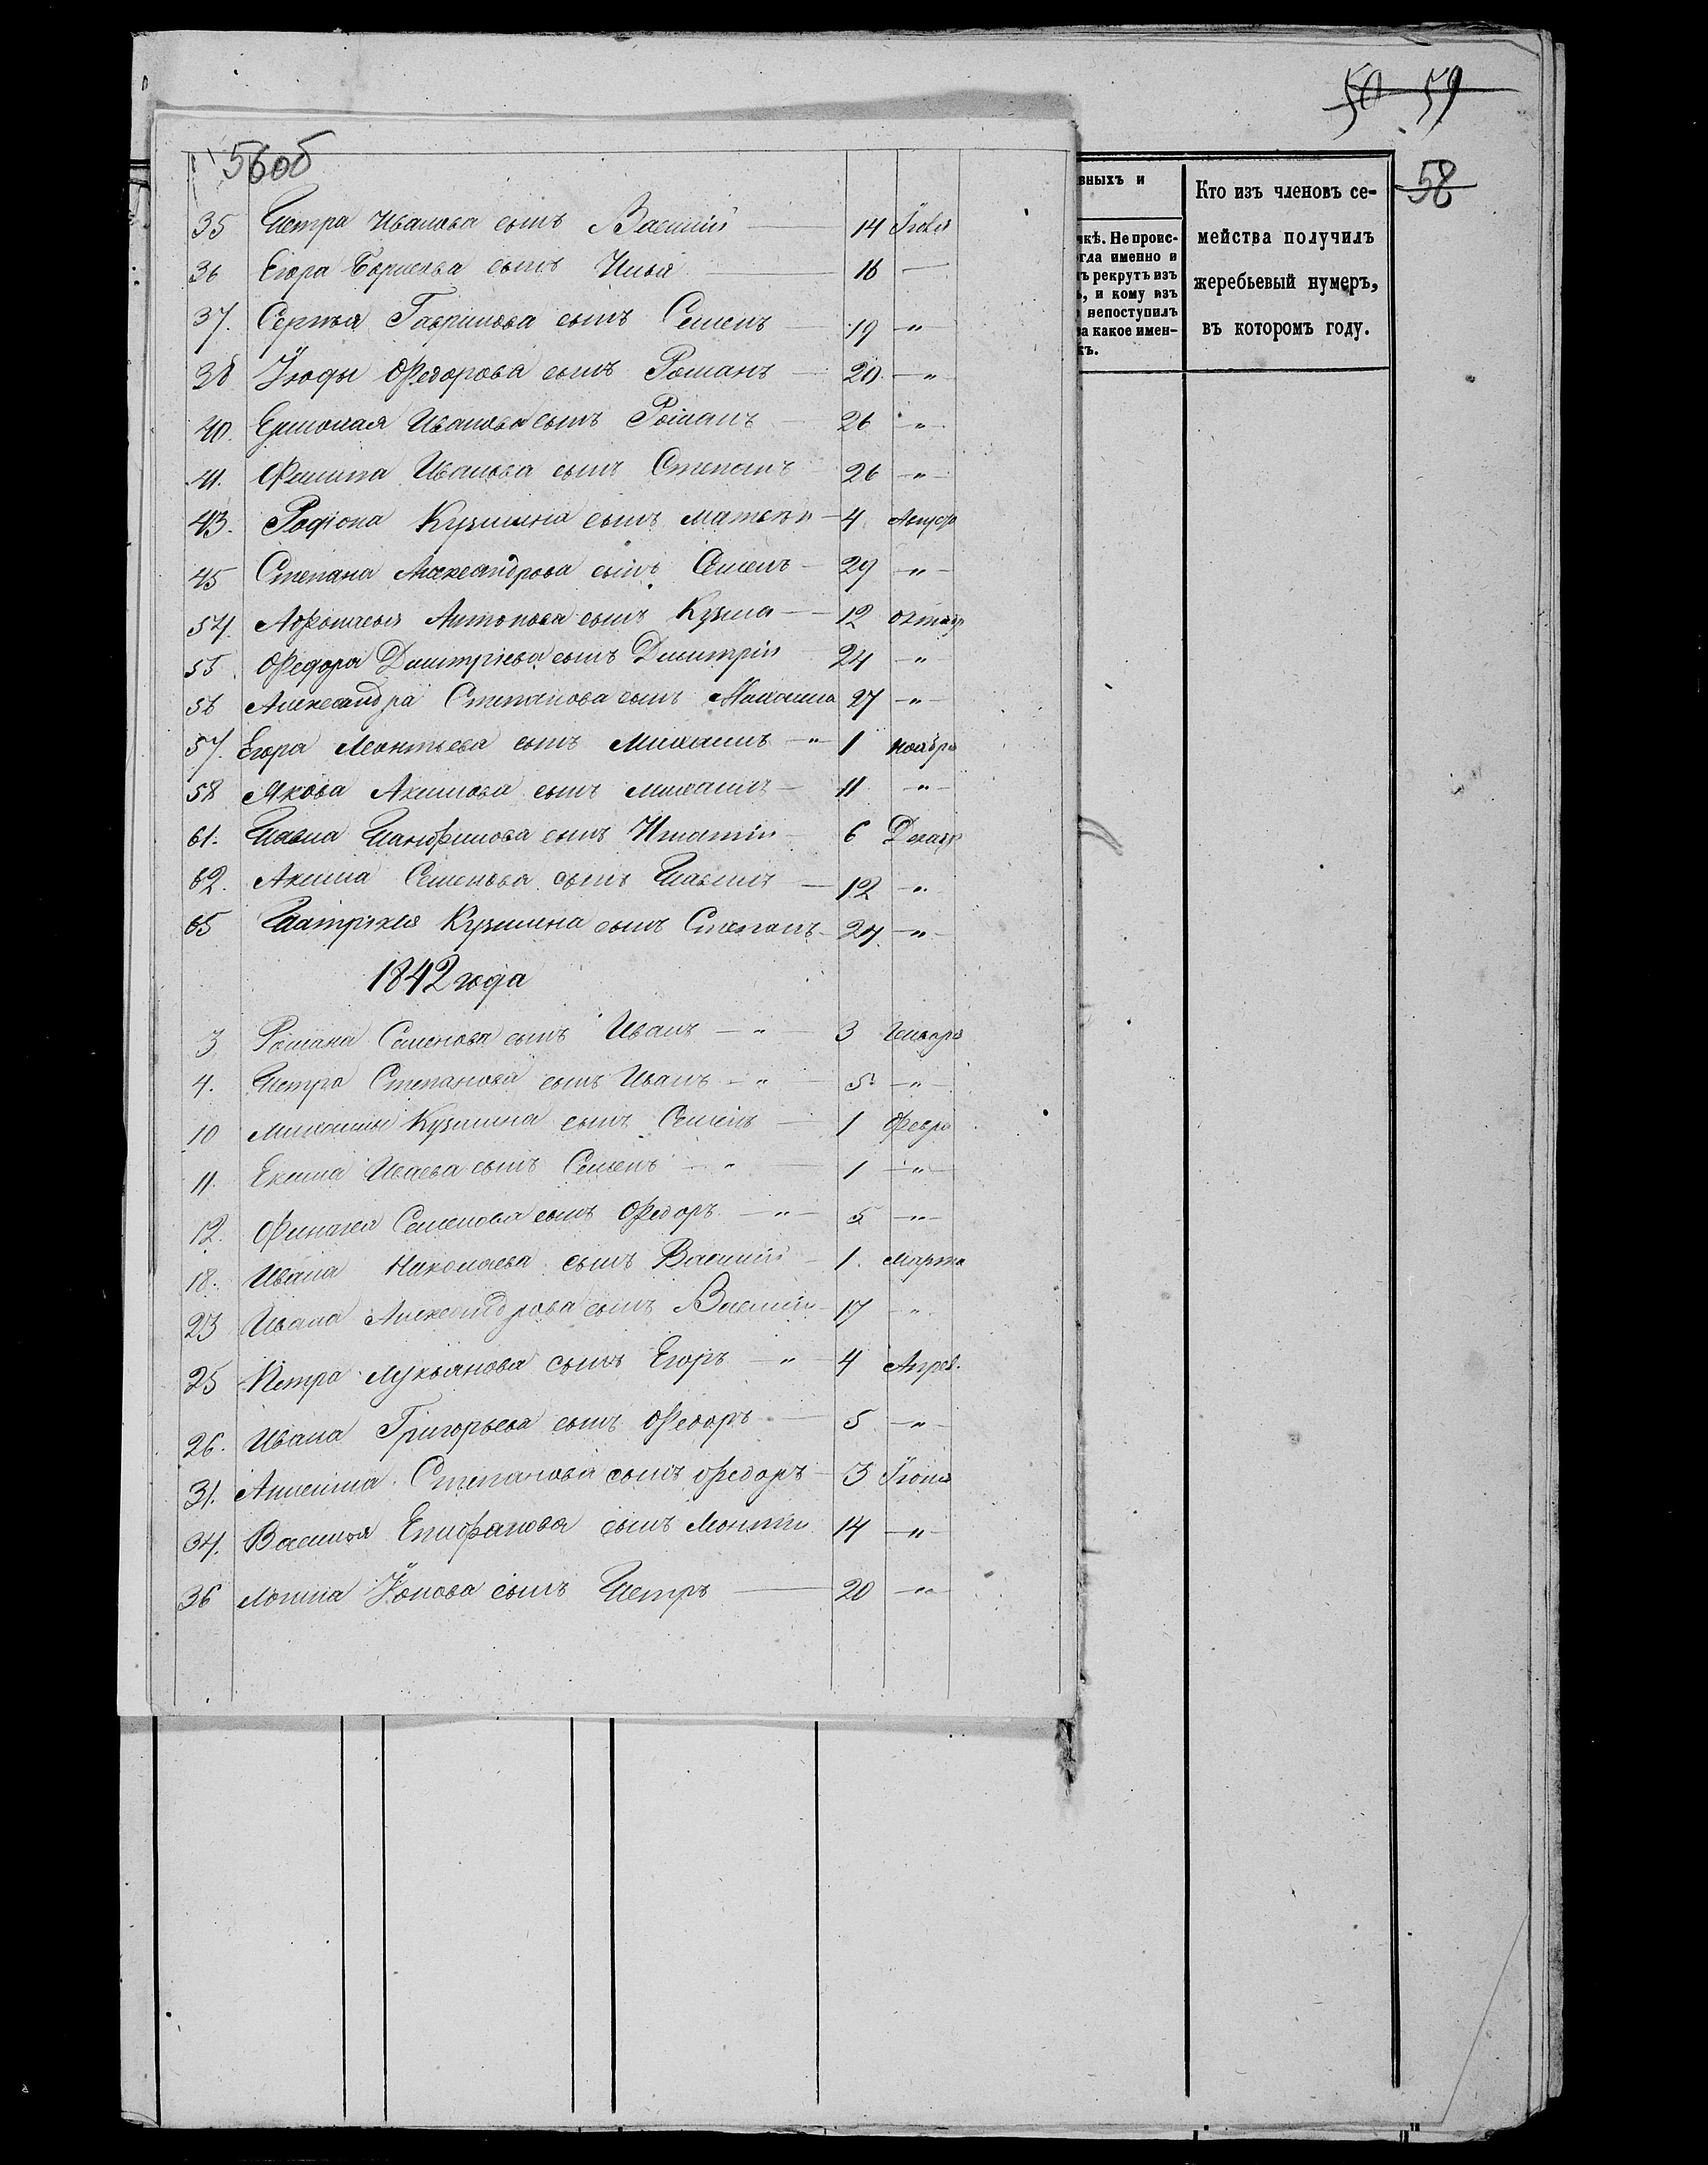 50 59
58
56об
вныхъ и
Кто изъ членовъ се-
мейства получилъ
жеребьевый нумеръ,
въ которомъ году.
чкѣ. Не проис-
огда именно и
ъ рекрутъ изъ
ъ, и кому изъ
непоступилъ
за какое имен-
къ.
35 Петра Иванова сынъ Василій — 14 Іюля
36 Егора Борисова сынъ Илья — 16 —
37. Сергѣя Гаврилова сынъ Семенъ — 19 — " —
38 Іюды Федорова сынъ Романъ — 20 — " —
40. Ермолая Иванова сынъ Романъ — 26 — " —
41. Филипа Иванова сынъ Степанъ 26 — " —
43. Родіона Кузмина сынъ Матвѣй — 4 Августа
45 Степана Александрова сынъ Семенъ — 29 — " —
54. Афонасья Антонова сынъ Кузма — 12 Октябр
55. Федора Дмитріева сынъ Дмитрій 24 — " —
56 Александра Степанова сынъ Михаила 27 — " —
57. Егора Леонтьева сынъ Михаилъ — " 1 Ноября
58 Якова Акимова сынъ Михаилъ — 11 — " —
61. Павла Панфилова сынъ Игнатій 6 Декабр
62. Акима Семенова сынъ Павелъ — 12 — " —
65 Патрікія Кузмина сынъ Степанъ — 24 — " —
1842 года
3 Романа Семенова сынъ Иванъ — " — 3 Генваря
4. Петра Степанова сынъ Иванъ — " — 5 — " —
10 Михаила Кузмина сынъ Семенъ — 1 Февра
11. Екима Исаева сынъ Семенъ — " — 1 — " —
12. Семенова сынъ Федоръ — " — 5 — " —
18. Ивана Николаева сынъ Василій — 1. Марта
23 Ивана Александрова сынъ Василій — 17 — " —
25 Петра Лукьянова сынъ Егоръ — " — 4 Апрел.
26. Ивана Григорьева сынъ Федоръ — 5 — " —
31. Степанова сынъ Федоръ — 3 Іюня
34. Василья Епифанова сынъ 14 — " —
36 Іонова сынъ Петръ — 20 — " —